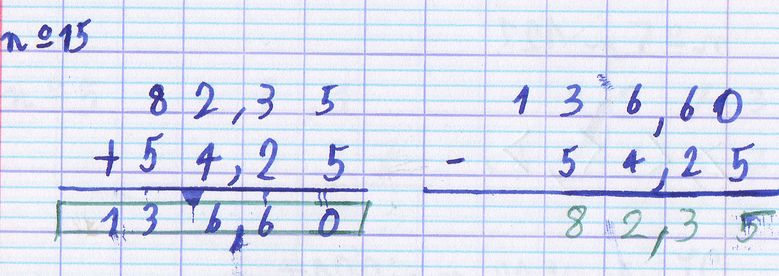 nº15
82,35 136,60
+54,25 - 54,25
136,60 82,35